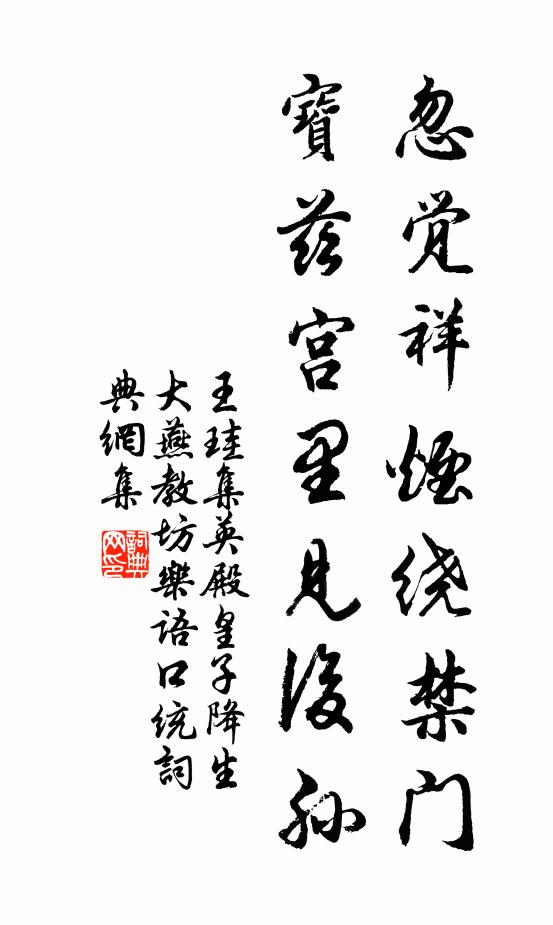 忽觉祥烟绕禁门
寶兹宫里見後孙
王珪集英殿皇子降生
大燕教坊樂語口统詞
典網集
詞典网印